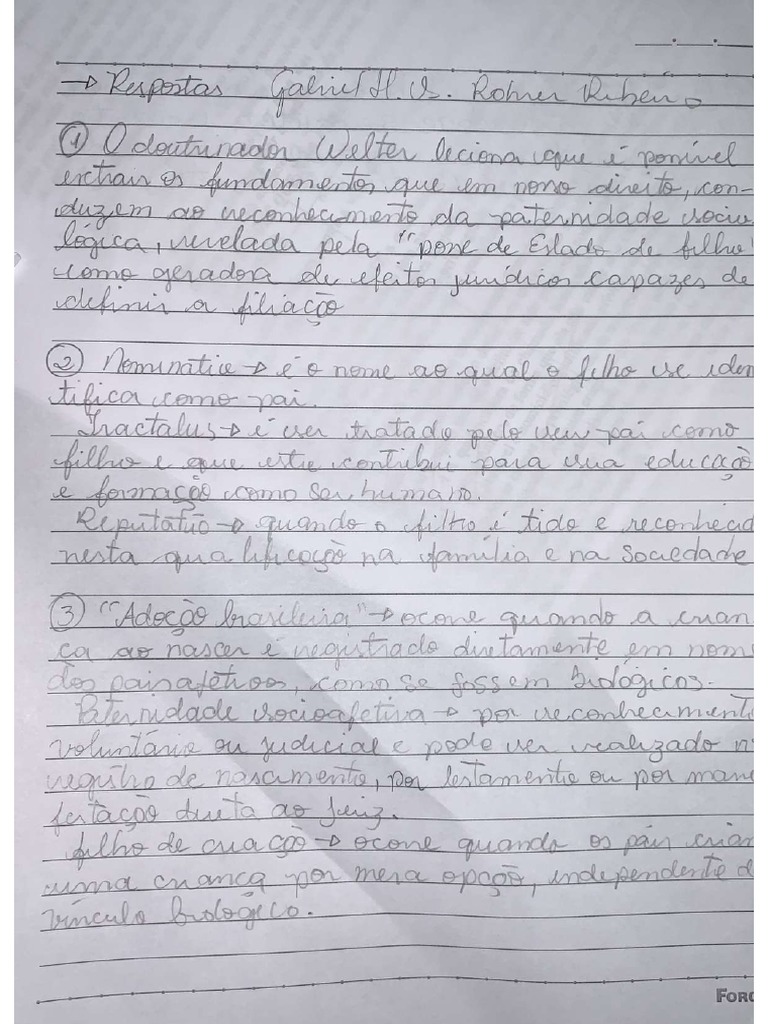 → Respostas Gabriel H. S. Rohrer Ribeiro
① O doutrinador Welter leciona que é possível
extrair os fundamentos, que em nosso direito, con-
duzem ao reconhecimento da paternidade socio
lógica, revelada pela "posse de Estado de filho"
como geradora de efeitos jurídicos capazes de
definir a filiação
② Nominatie → é o nome ao qual o filho se iden
tifica como pai.
Tractatus → é ser tratado pelo seu pai como
filho e que este contribui para sua educação
e formação como ser humano.
Reputatio → quando o filho é tido e reconhecid
nesta qualificação na família e na Sociedade
③ "Adoção brasileira" → ocorre quando a crian
ça ao nascer é registrado diretamente em nome
dos pais afetivos, como se fossem Biológicos.
Paternidade socioafetiva → por reconhecimento
voluntário ou judicial e pode ser realizado n
registro de nascimento, por testamento ou por mani
festação direta ao juiz.
filho de criação → ocorre quando os pais criam
uma criança por mera opção, independente d
vínculo biológico.
FORO